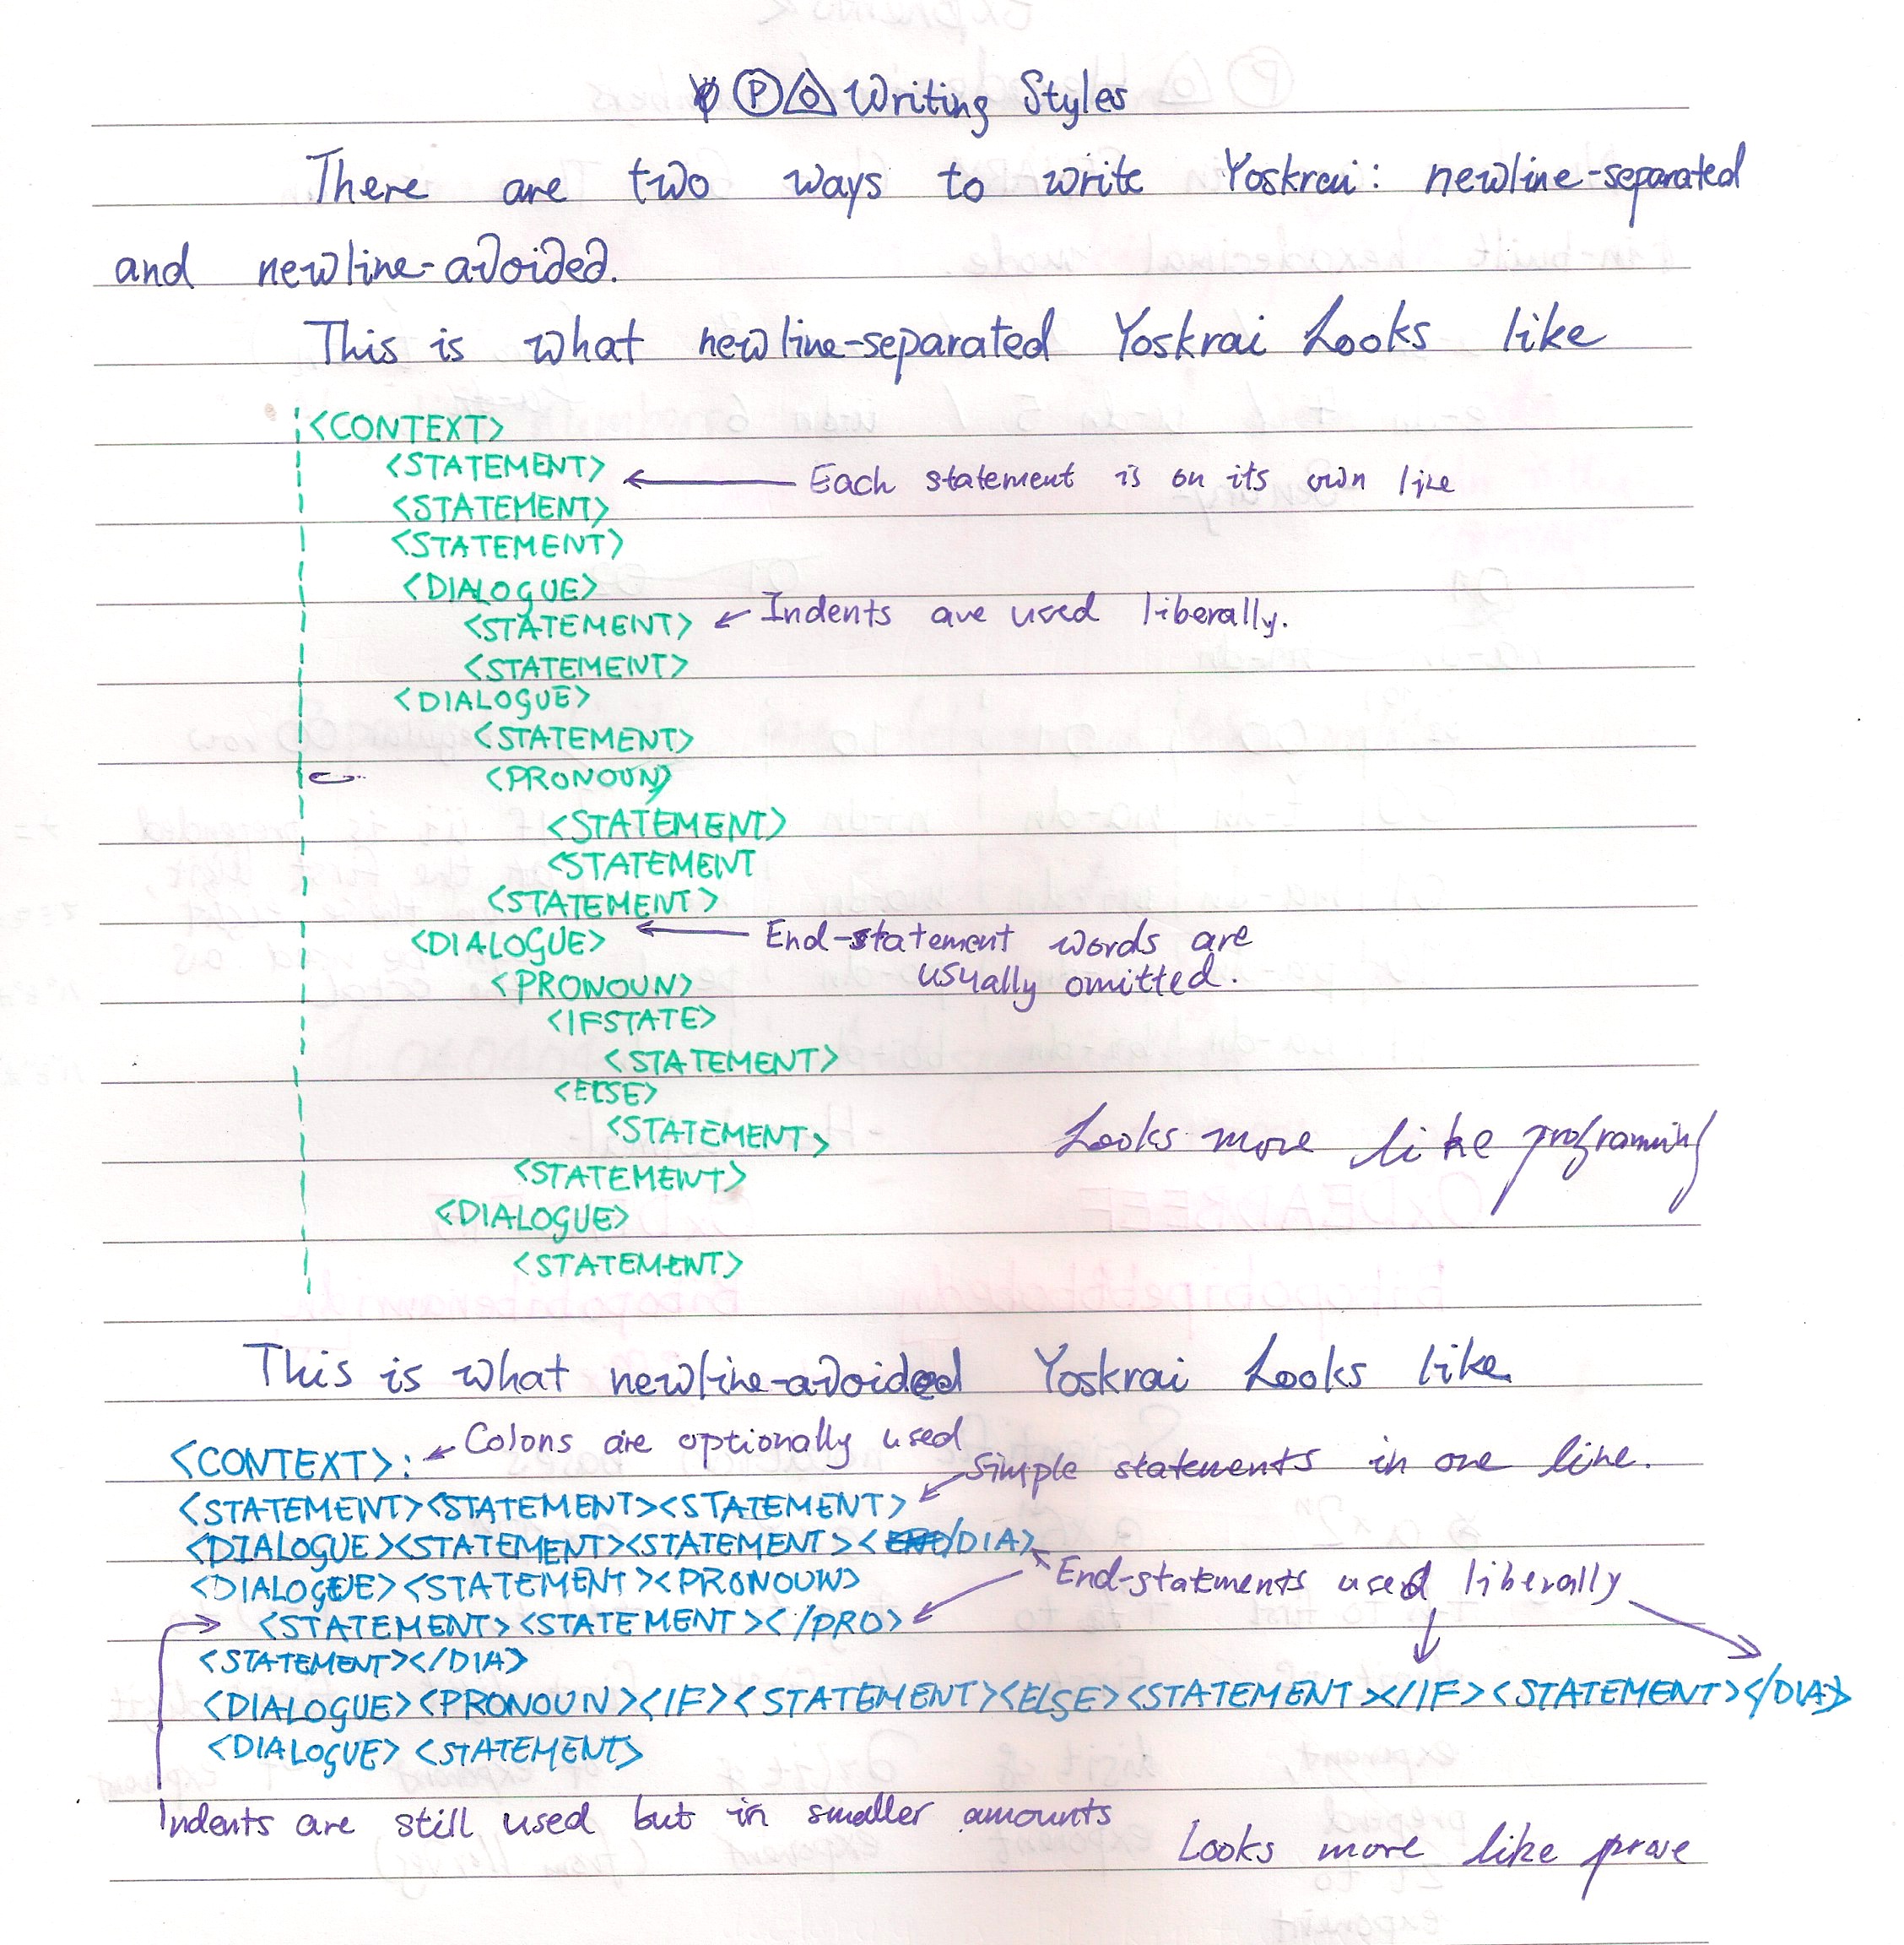 Ⓟ Writing Styles
There are two ways to write Yoskrai: newline-separated
and newline-avoided.
This is what newline-separated Yoskrai Looks like
<CONTEXT>
<STATEMENT> Each statement is on its own line
<STATEMENT>
<STATEMENT>
<DIALOGUE>
<STATEMENT> Indents are used liberally.
<STATEMENT>
<DIALOGUE>
<STATEMENT>
<PRONOUN>
<STATEMENT>
<STATEMENT
<STATEMENT>
<DIALOGUE> End-statement words are
usually omitted.
<PRONOUN>
<IFSTATE>
<STATEMENT>
<ELSE>
<STATEMENT>
Looks more like programing
<STATEMENT>
<DIALOGUE>
<STATEMENT>
This is what newline-avoided Yoskrai Looks like
<CONTEXT>: Colons are optionally used
Simple statements in one line.
<STATEMENT><STATEMENT><STATEMENT>
<DIALOGUE><STATEMENT><STATEMENT></DIA>
End-statements used liberally
<DIALOGUE><STATEMENT><PRONOUN>
<STATEMENT><STATEMENT></PRO>
<STATEMENT></DIA>
<DIALOGUE><PRONOUN><IF><STATEMENT><ELSE><STATEMENT></IF><STATEMENT></DIA>
<DIALOGUE><STATEMENT>
Indents are still used but in smaller amounts
Looks more like prose